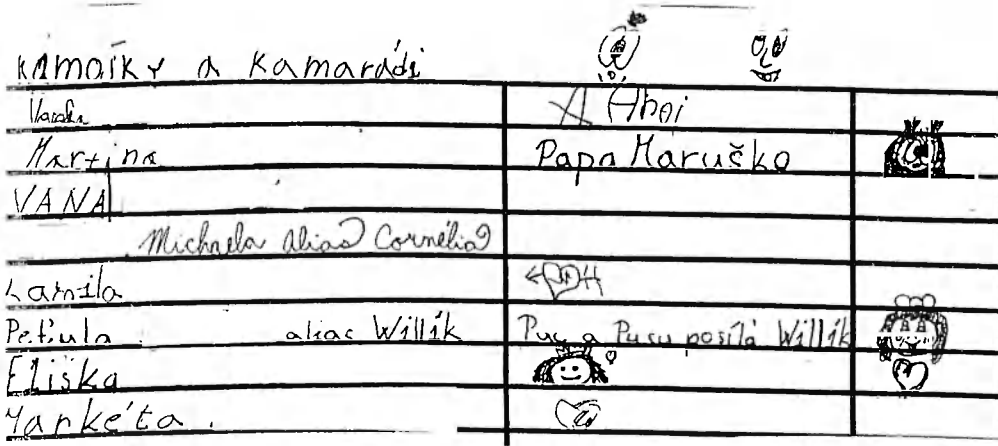 kamaráDi a Kamarádi
A Ahoj
Martina Papa Maruško
VANA
Michaela alias Cornélia
Kamila
Peťula alias Willík Pus a Pusu posílá Willík
Eliška
Markéta.